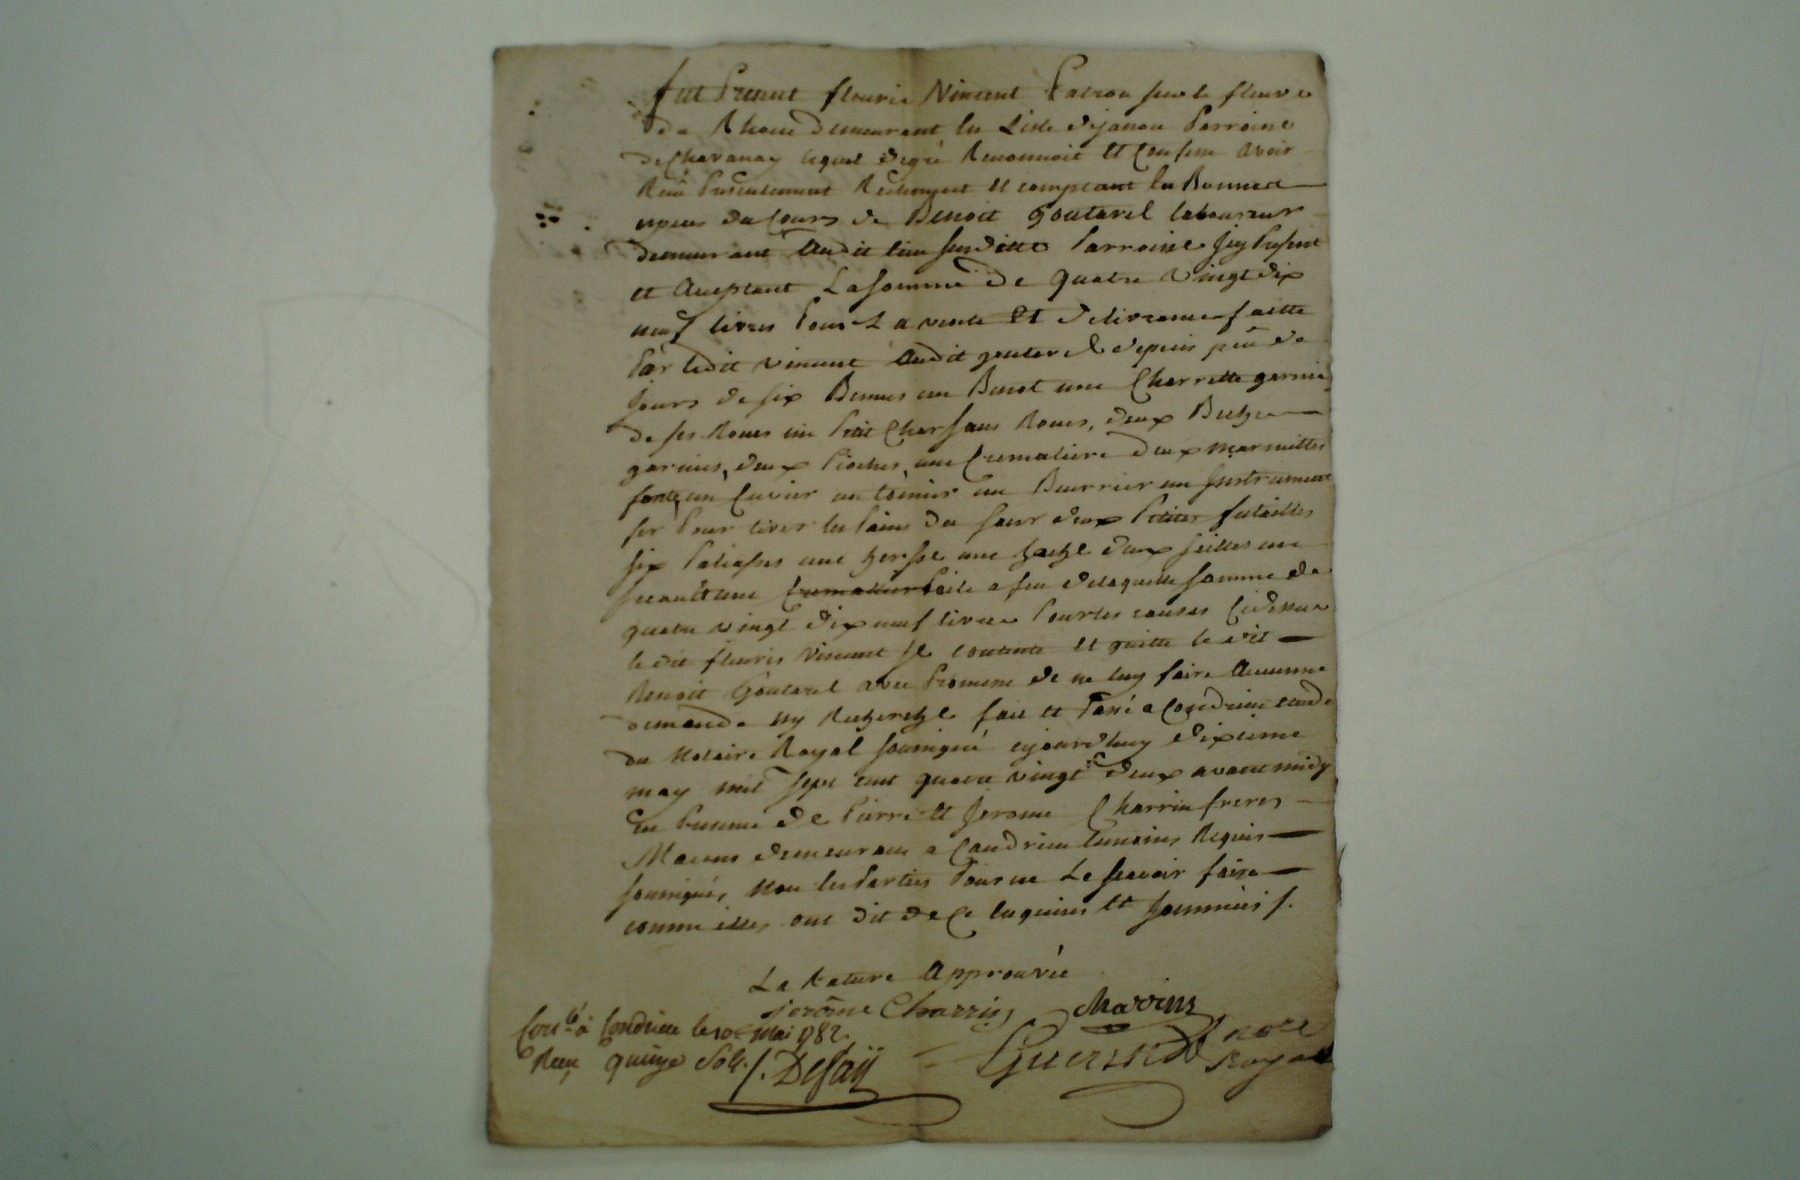 fut Present fleurie Vincent Patron sur le fleuve
du Rhone demeurant en L'isle dejanou Parroisse
de Chavanay lequel degré Reconnoit et Confesse avoir
Reçû Presentement Réelement et comptant en Bonnes
espèces du Cours de Benoit Goutarel laboureur
demeurant Audit lieu susditte Parroisse Jcy Present
et Aceptant La somme de quatre Vingt dix
neuf livres Pour La vente Et delivrance faitte
Par ledit Vincent Audit goutarel depuis peû de
Jours de six Bennes une Charrette garnie
de ses Roues un Petit Char sans Roues, deux Beches
garnies, deux Pioches, une Cremaliere deux marmittes
fonte, un Cuvier un un Beurrier un Jnstrument
fer Pour tirer les Pains du four deux Petites futailles
six Paliasses une herse une hache deux seilles une
Cremaliere Poile a feu delaquelle somme de
quatre vingt dix neuf livres Pour les causes Cidessus
le dit fleuris Vincent se contente et quitte le dit
Benoit Goutarel avec Promesse de ne luy faire Aucunne
demande ny Recherche fait et Passé a Condrieu etude
du Notaire Royal soussigné cejourdhuy dixieme
may mil sept cent quatre vingt deux avant midy
en Presence de Pierre et Jerome Charrin freres
Macons demeurans a Condrieu temoins Requis
soussignés, Non les Parties Pour ne Le scavoir faire
comme elles ont dit de Ce enquises et sommées /.
La Rature Approuvée
jerôme Charrin Charrin
Con.lé à Condrieu le 10e Mai 1782
Reçu quinze sols /. Desaÿ
Guerin nore
Royal